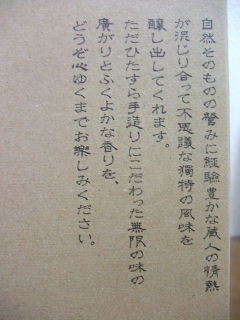 自然そのものの営みに経験豊かな蔵人の情熱
が混じり合って不思議な獨特の風味を
醸し出してくれます。
ただひたすら手造りにこだわった無限の味の
廣がりとふくよかな香りを、
どうぞ心ゆくまでお楽しみください。